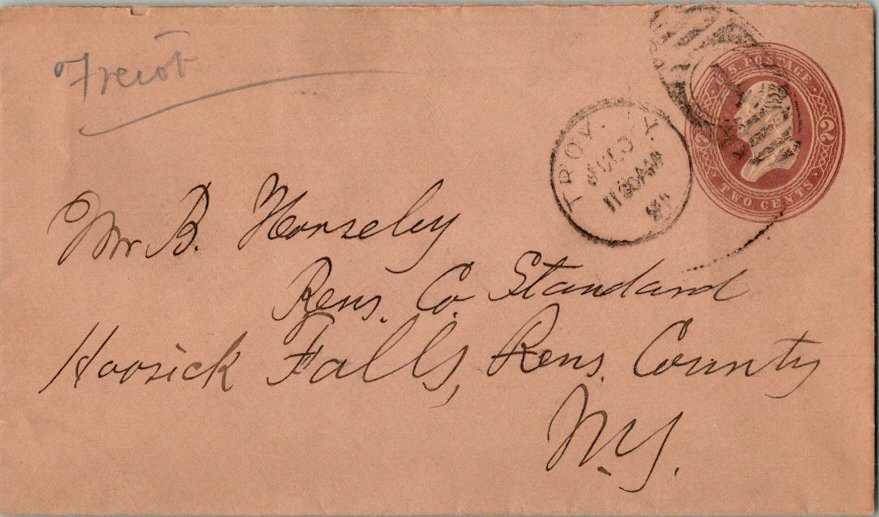 Freiot
U.S. POSTAGE
2
TWO CENTS
TROY N.Y.
11 30 AM
Mr B. Horseley
Rens. Co Standard
Hoosick Falls, Rens. County
N.Y.